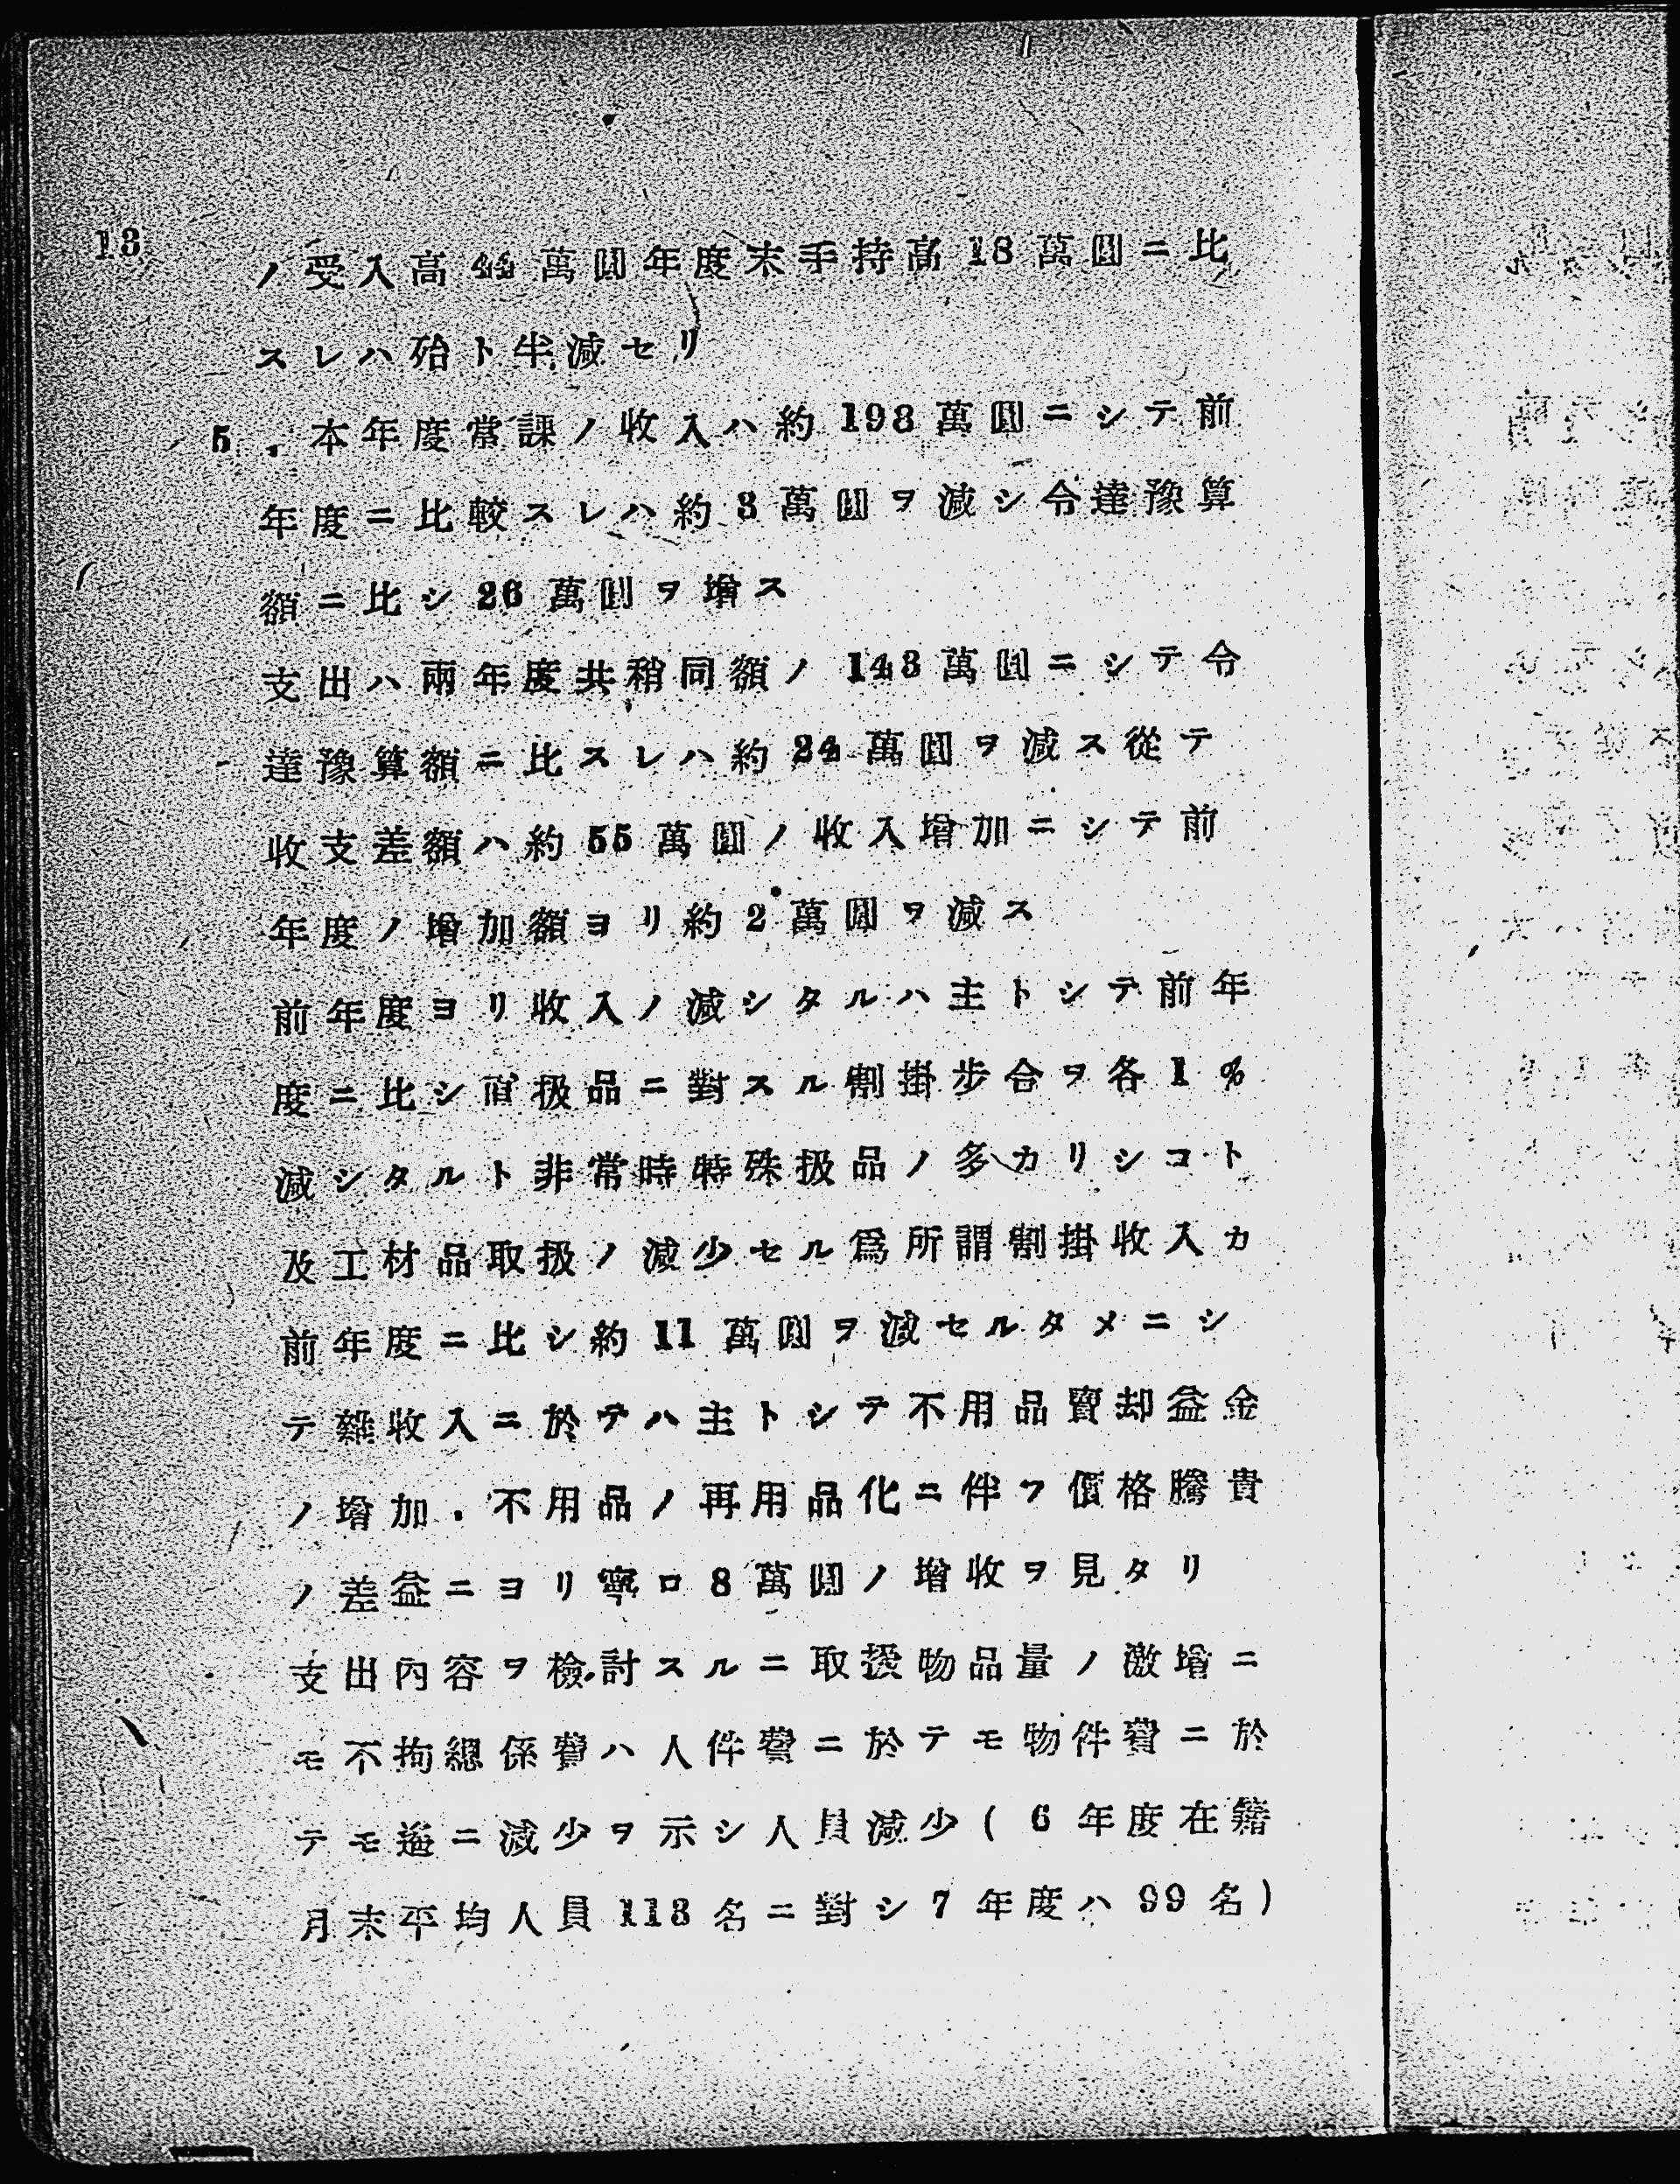 13
ノ受入高44萬圓年度末手持高18萬圓ニ比
スレハ殆ト半減セリ
5．本年度常課ノ收入ハ約198萬圓ニシテ前
年度ニ比較スレハ約3萬圓ヲ減シ令達豫算
額ニ比シ26萬圓ヲ增ス
支出ハ兩年度共稍同額ノ143萬圓ニシテ令
達豫算額ニ比スレハ約24萬圓ヲ減ス從テ
收支差額ハ約55萬圓ノ收入增加ニシテ前
年度ノ增加額ヨリ約2萬圓ヲ減ス
前年度ヨリ收入ノ減シタルハ主トシテ前年
度ニ比シ直扱品ニ對スル割掛步合ヲ各1%
減シタルト非常時特殊扱品ノ多カリシコト
及工材品取扱ノ減少セル爲所謂割掛收入カ
前年度ニ比シ約11萬圓ヲ減セルタメニシ
テ雜收入ニ於テハ主トシテ不用品賣却益金
ノ增加．不用品ノ再用品化ニ伴フ價格騰貴
ノ差益ニヨリ寧ロ8萬圓ノ增收ヲ見タリ
支出內容ヲ檢討スルニ取扱物品量ノ激增ニ
モ不拘總係費ハ人件費ニ於テモ物件費ニ於
テモ遙ニ減少ヲ示シ人員減少(6年度在籍
月末平均人員113名ニ對シ7年度ハ99名)